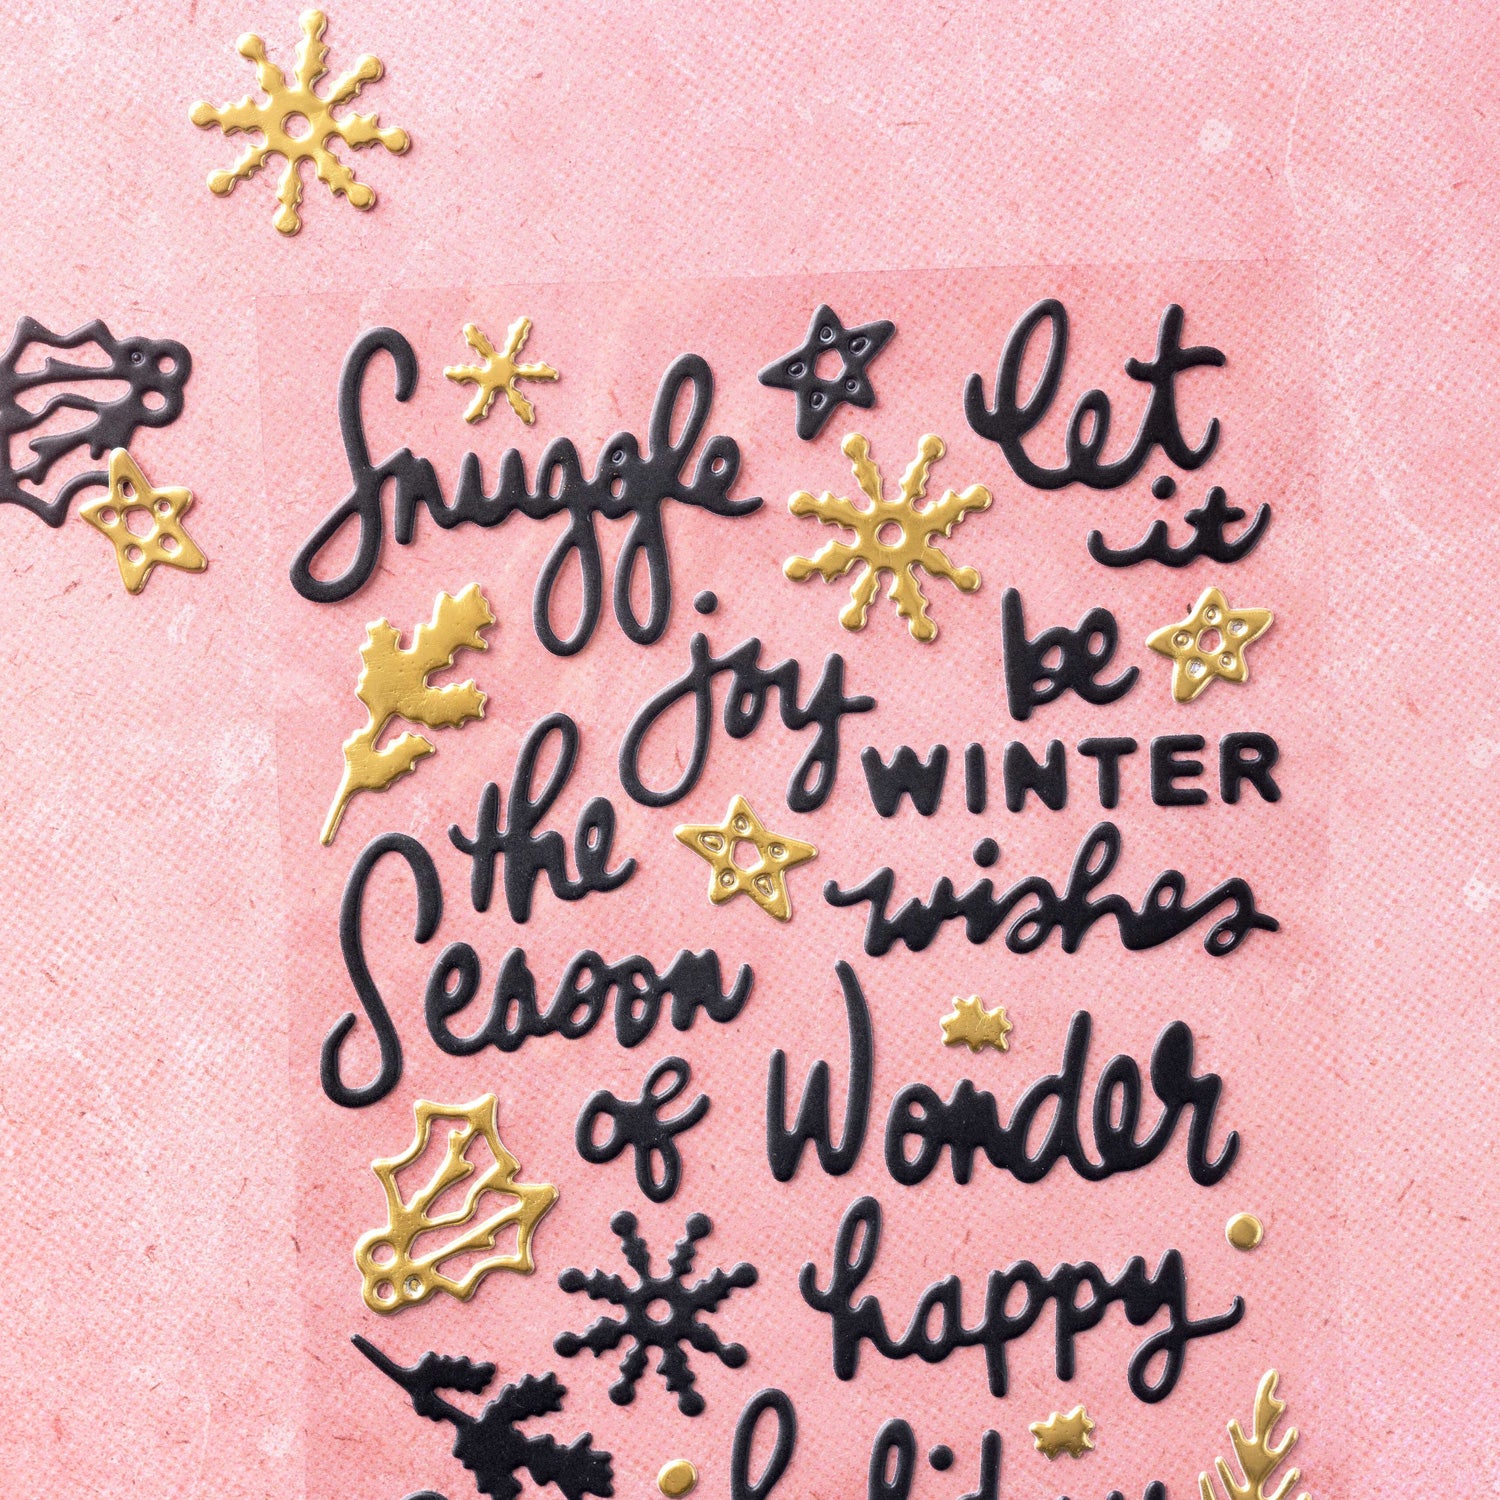 Snuggle
let
it
joy
be
WINTER
the
wishes
Season
of Wonder
happy